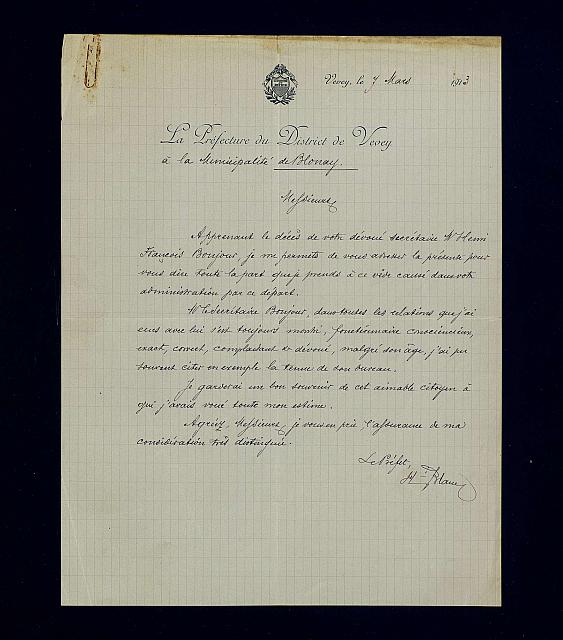 Vevey, le 7 Mars 1913
La Préfecture du District de Vevey
à la Municipalité de Blonay.
Messieurs,
Apprenant le décès de votre dévoué secrétaire Mr Henri
François Bonjour, je me permets de vous adresser la présente pour
vous dire toute la part que je prends à ce vide causé dans votre
administration par ce départ.
Mr le Secrétaire Bonjour, dans toutes les relations que j'ai
eues avec lui s'est toujours montré, fonctionnaire consciencieux,
exact, correct, complaisant & dévoué, malgré son âge, j'ai pu
souvent citer en exemple la tenue de son bureau.
Je garderai un bon souvenir de cet aimable citoyen à
qui j'avais voué toute mon estime.
Agréez, Messieurs, je vous en prie l'assurance de ma
considération très distinguée.
Le Préfet,